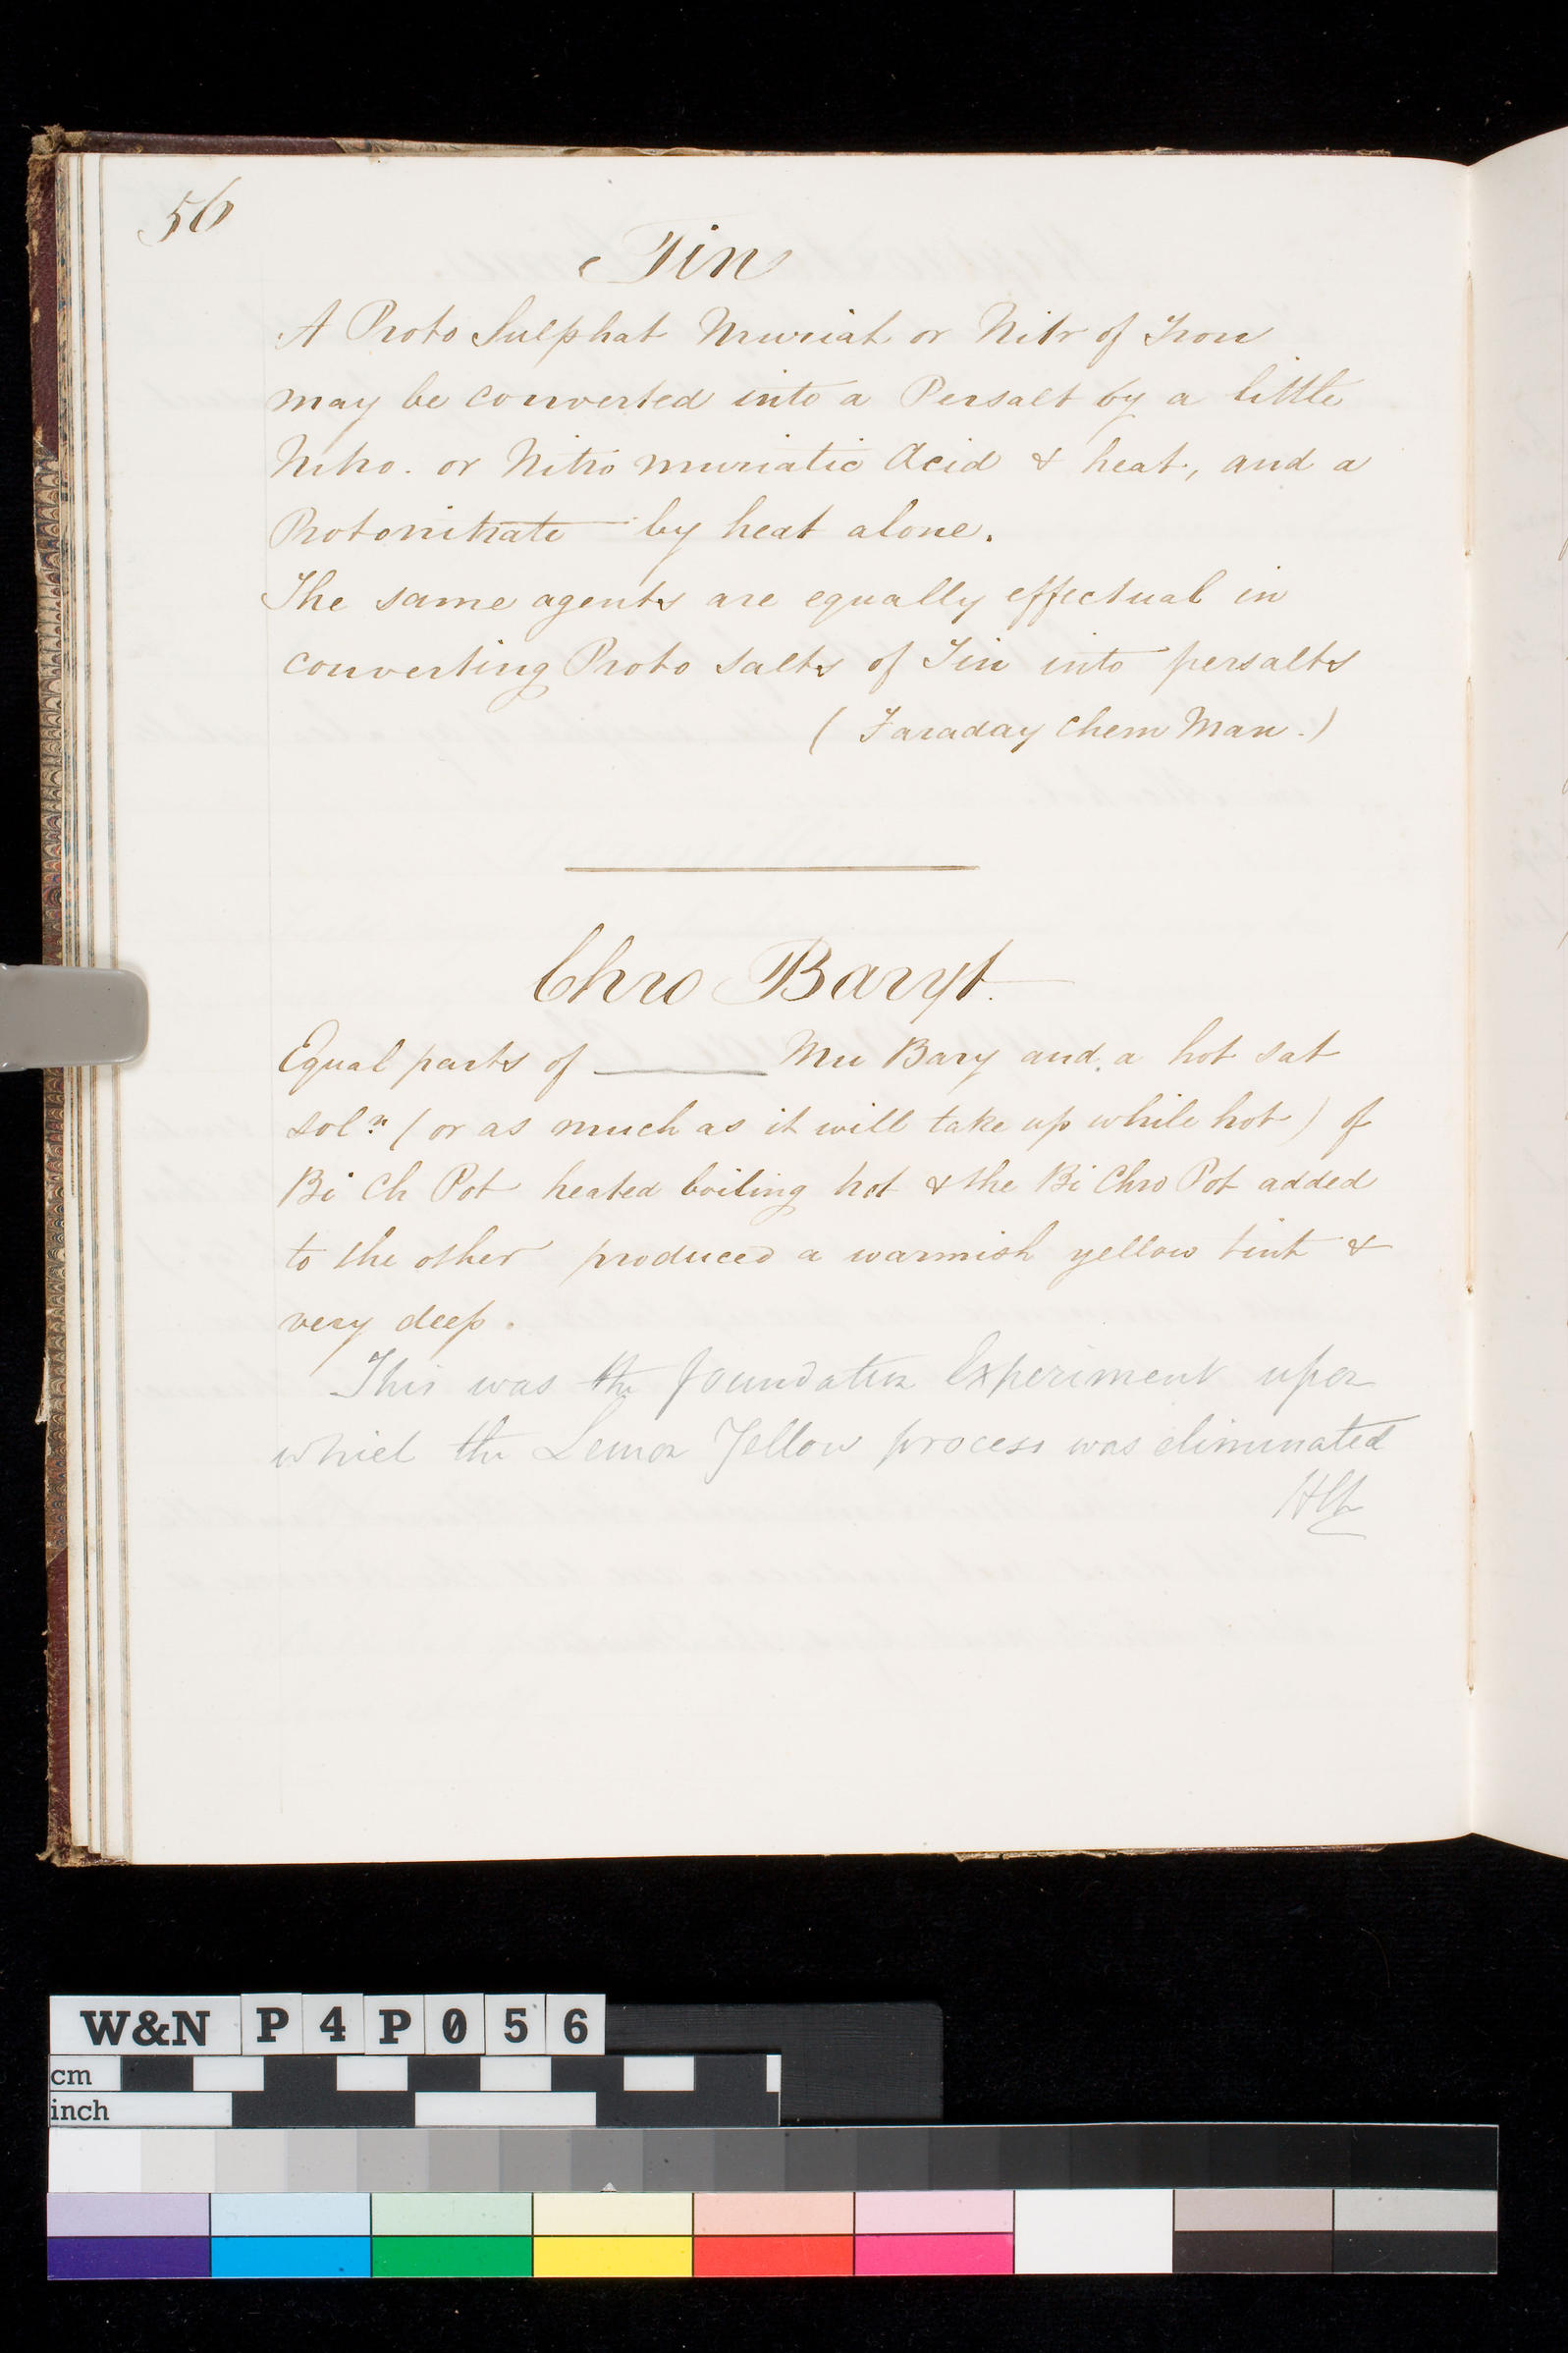 56
Tin
A Proto Sulphat Muriat or Nitr of Iron
may be converted into a Persalt by a little
Nitro. or Nitro muriatic Acid & heat, and a
Protonitrate by heat alone.
The same agents are equally effectual in
converting Proto salts of Tin into persalts
(Faraday Chem Man.)
Chro Baryt.
Equal parts of ______ Mu Bary and a hot sat
solⁿ (or as much as it will take up while hot) of
Bi Ch Pot heated boiling hot & the Bi Chro Pot added
to the other produced a warmish yellow tint &
very deep.
This was the foundation Experiment upon
which the Lemon Yellow process was eliminated
W&N P4P056
cm
inch